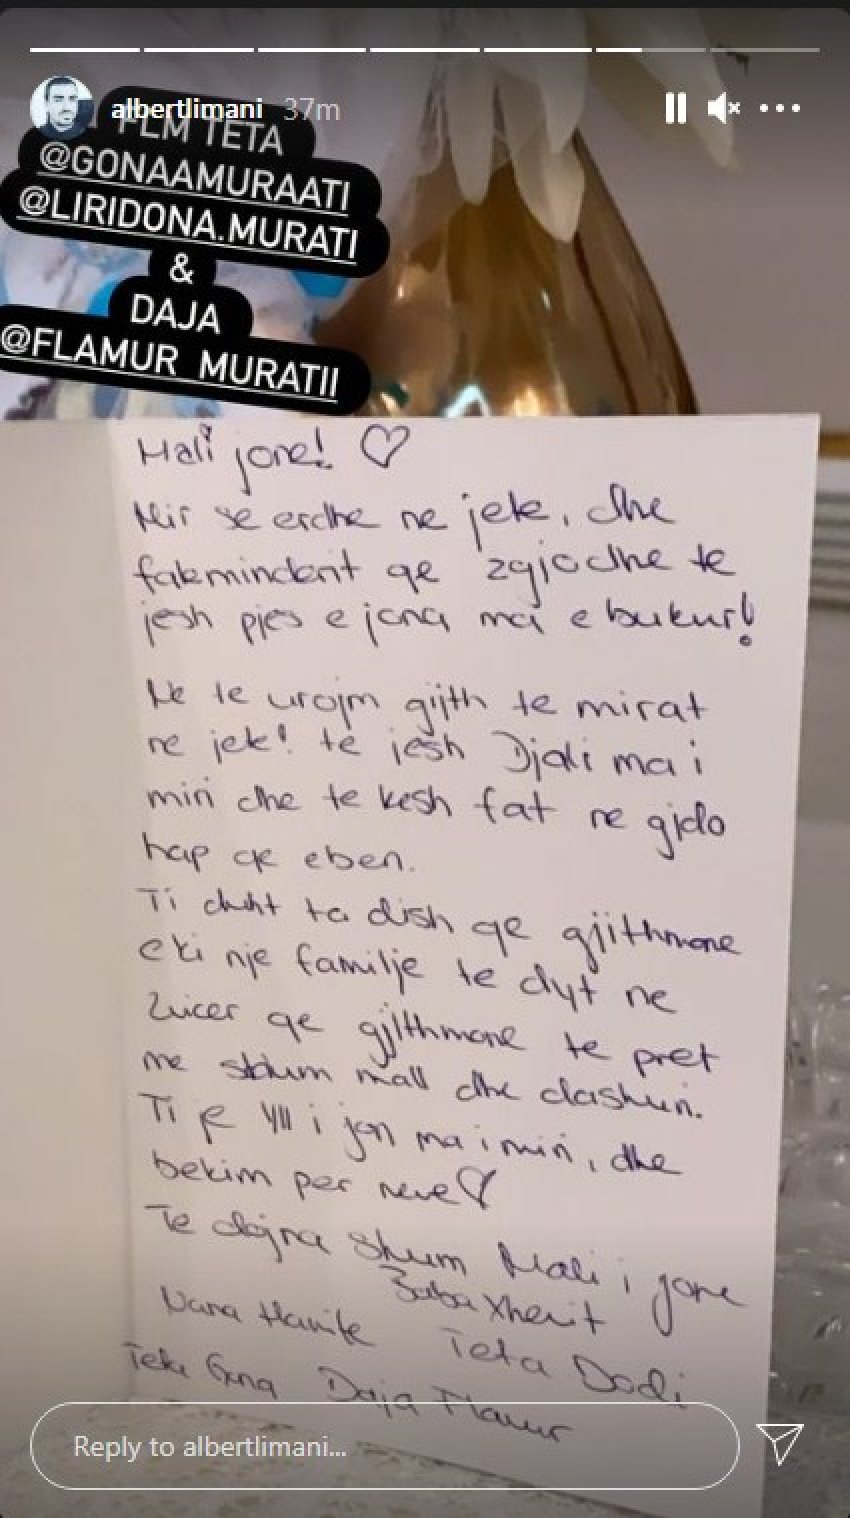 albertlimani 37m
FLM TETA
@GONAAMURAATI
@LIRIDONA.MURATI
&
DAJA
@FLAMUR MURATII
Mali jone! ♡
Mir se erdhe ne jete, dhe
faleminderit qe zgjodhe te
jesh pjes e jona ma e bukur!
Ne te urojm gjith te mirat
ne jet! te jesh Djali ma i
miri dhe te kesh fat ne gjdo
hap qe eben.
Ti duht ta dish qe gjithmone
e ki nje familje te dyt ne
Zvicer qe gjithmone te pret
me shum mall dhe dashuri.
Ti je Ylli i jon ma i miri, dhe
bekim per neve ♡
Te dojna shum Mali i jone
Baba Xhevit
Nana Hamite Teta Dodi
Teta Gona Daja Flamur
Reply to albertlimani...